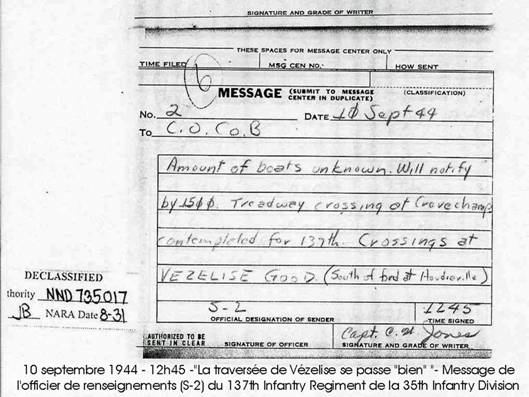 SIGNATURE AND GRADE OF WRITER
THESE SPACES FOR MESSAGE CENTER ONLY
TIME FILED MSG CEN NO. HOW SENT
MESSAGE (SUBMIT TO MESSAGE CENTER IN DUPLICATE) (CLASSIFICATION)
No. 2 DATE 10 Sept 44
To C.O. Co. B
Amount of boats unknown. Will notify
by 1500. Treadway crossing at Crevechamp
contemplated for 137th. Crossings at
VEZELISE GOOD. (South of ford at
S-2 1245
OFFICIAL DESIGNATION OF SENDER TIME SIGNED
AUTHORIZED TO BE SENT IN CLEAR
Capt. C. W. Jones
SIGNATURE OF OFFICER SIGNATURE AND GRADE OF WRITER
DECLASSIFIED
thority NND 735017
JB NARA Date 8-31
10 septembre 1944 - 12h45 -"La traversée de Vézelise se passe "bien" "- Message de
l'officier de renseignements (S-2) du 137th Infantry Regiment de la 35th Infantry Division